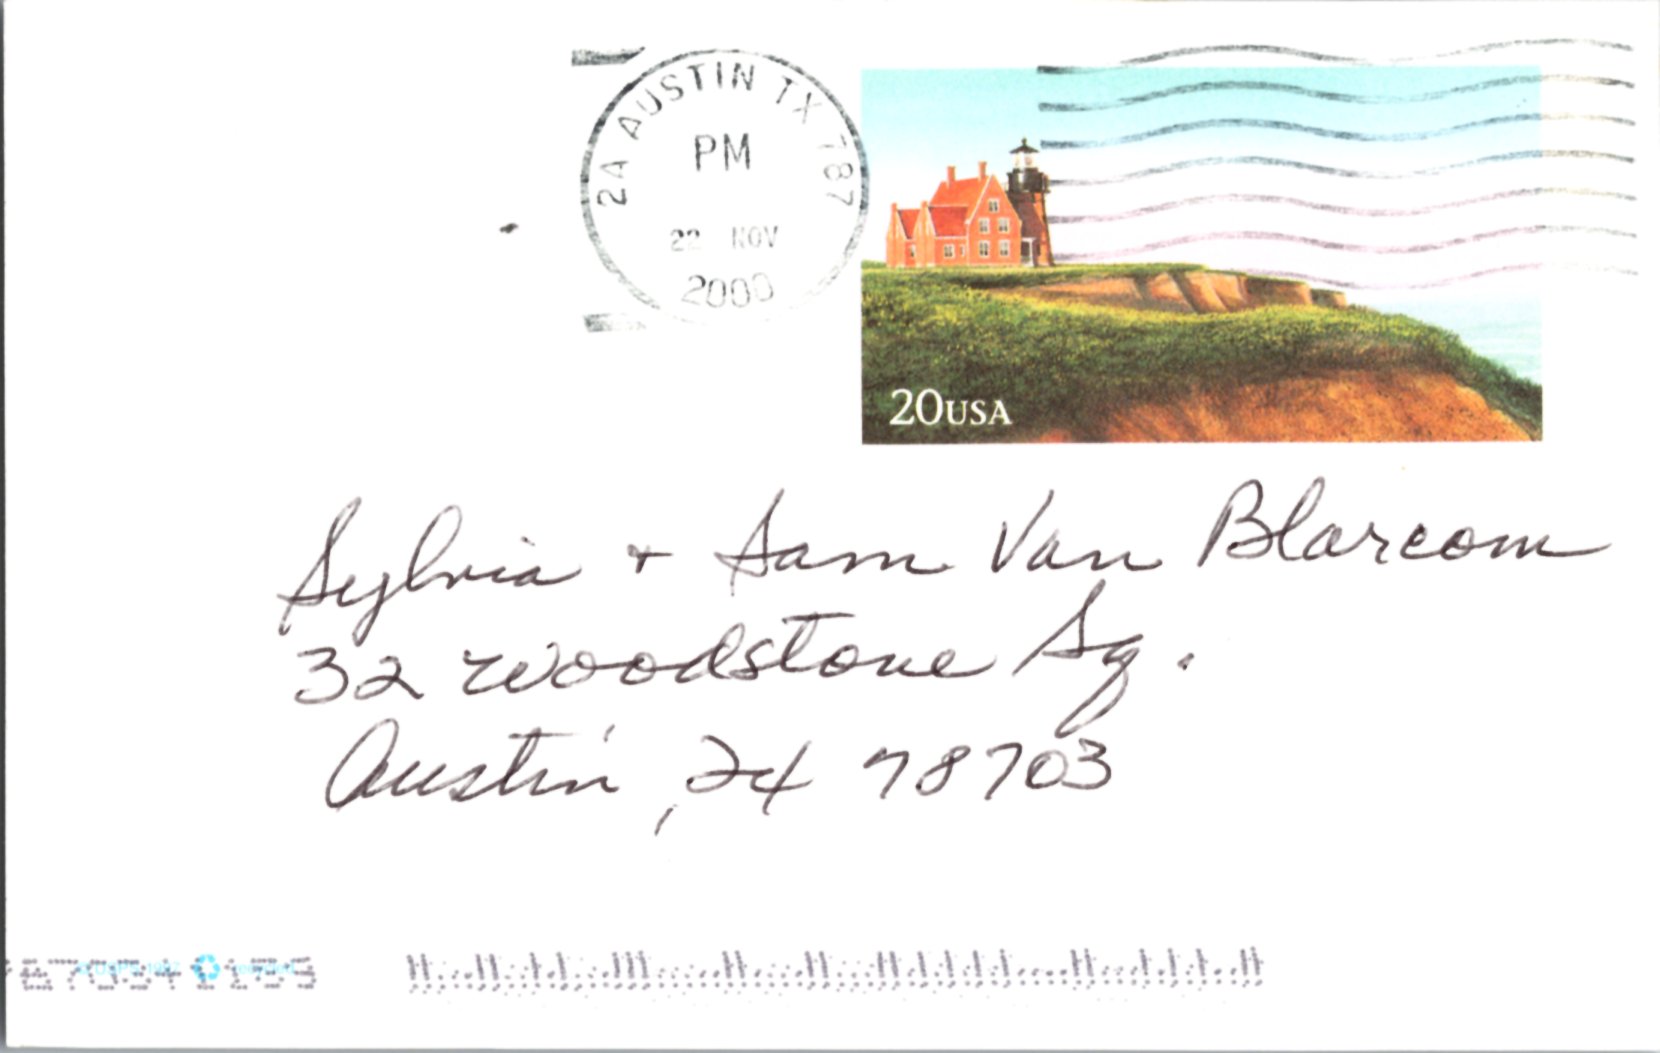 2A AUSTIN TX 787
PM
22 NOV
2000
20USA
Sylvia + Sam Van Blarcom
32 Woodstone Sq.
Austin, TX 78703
© USPS 1997